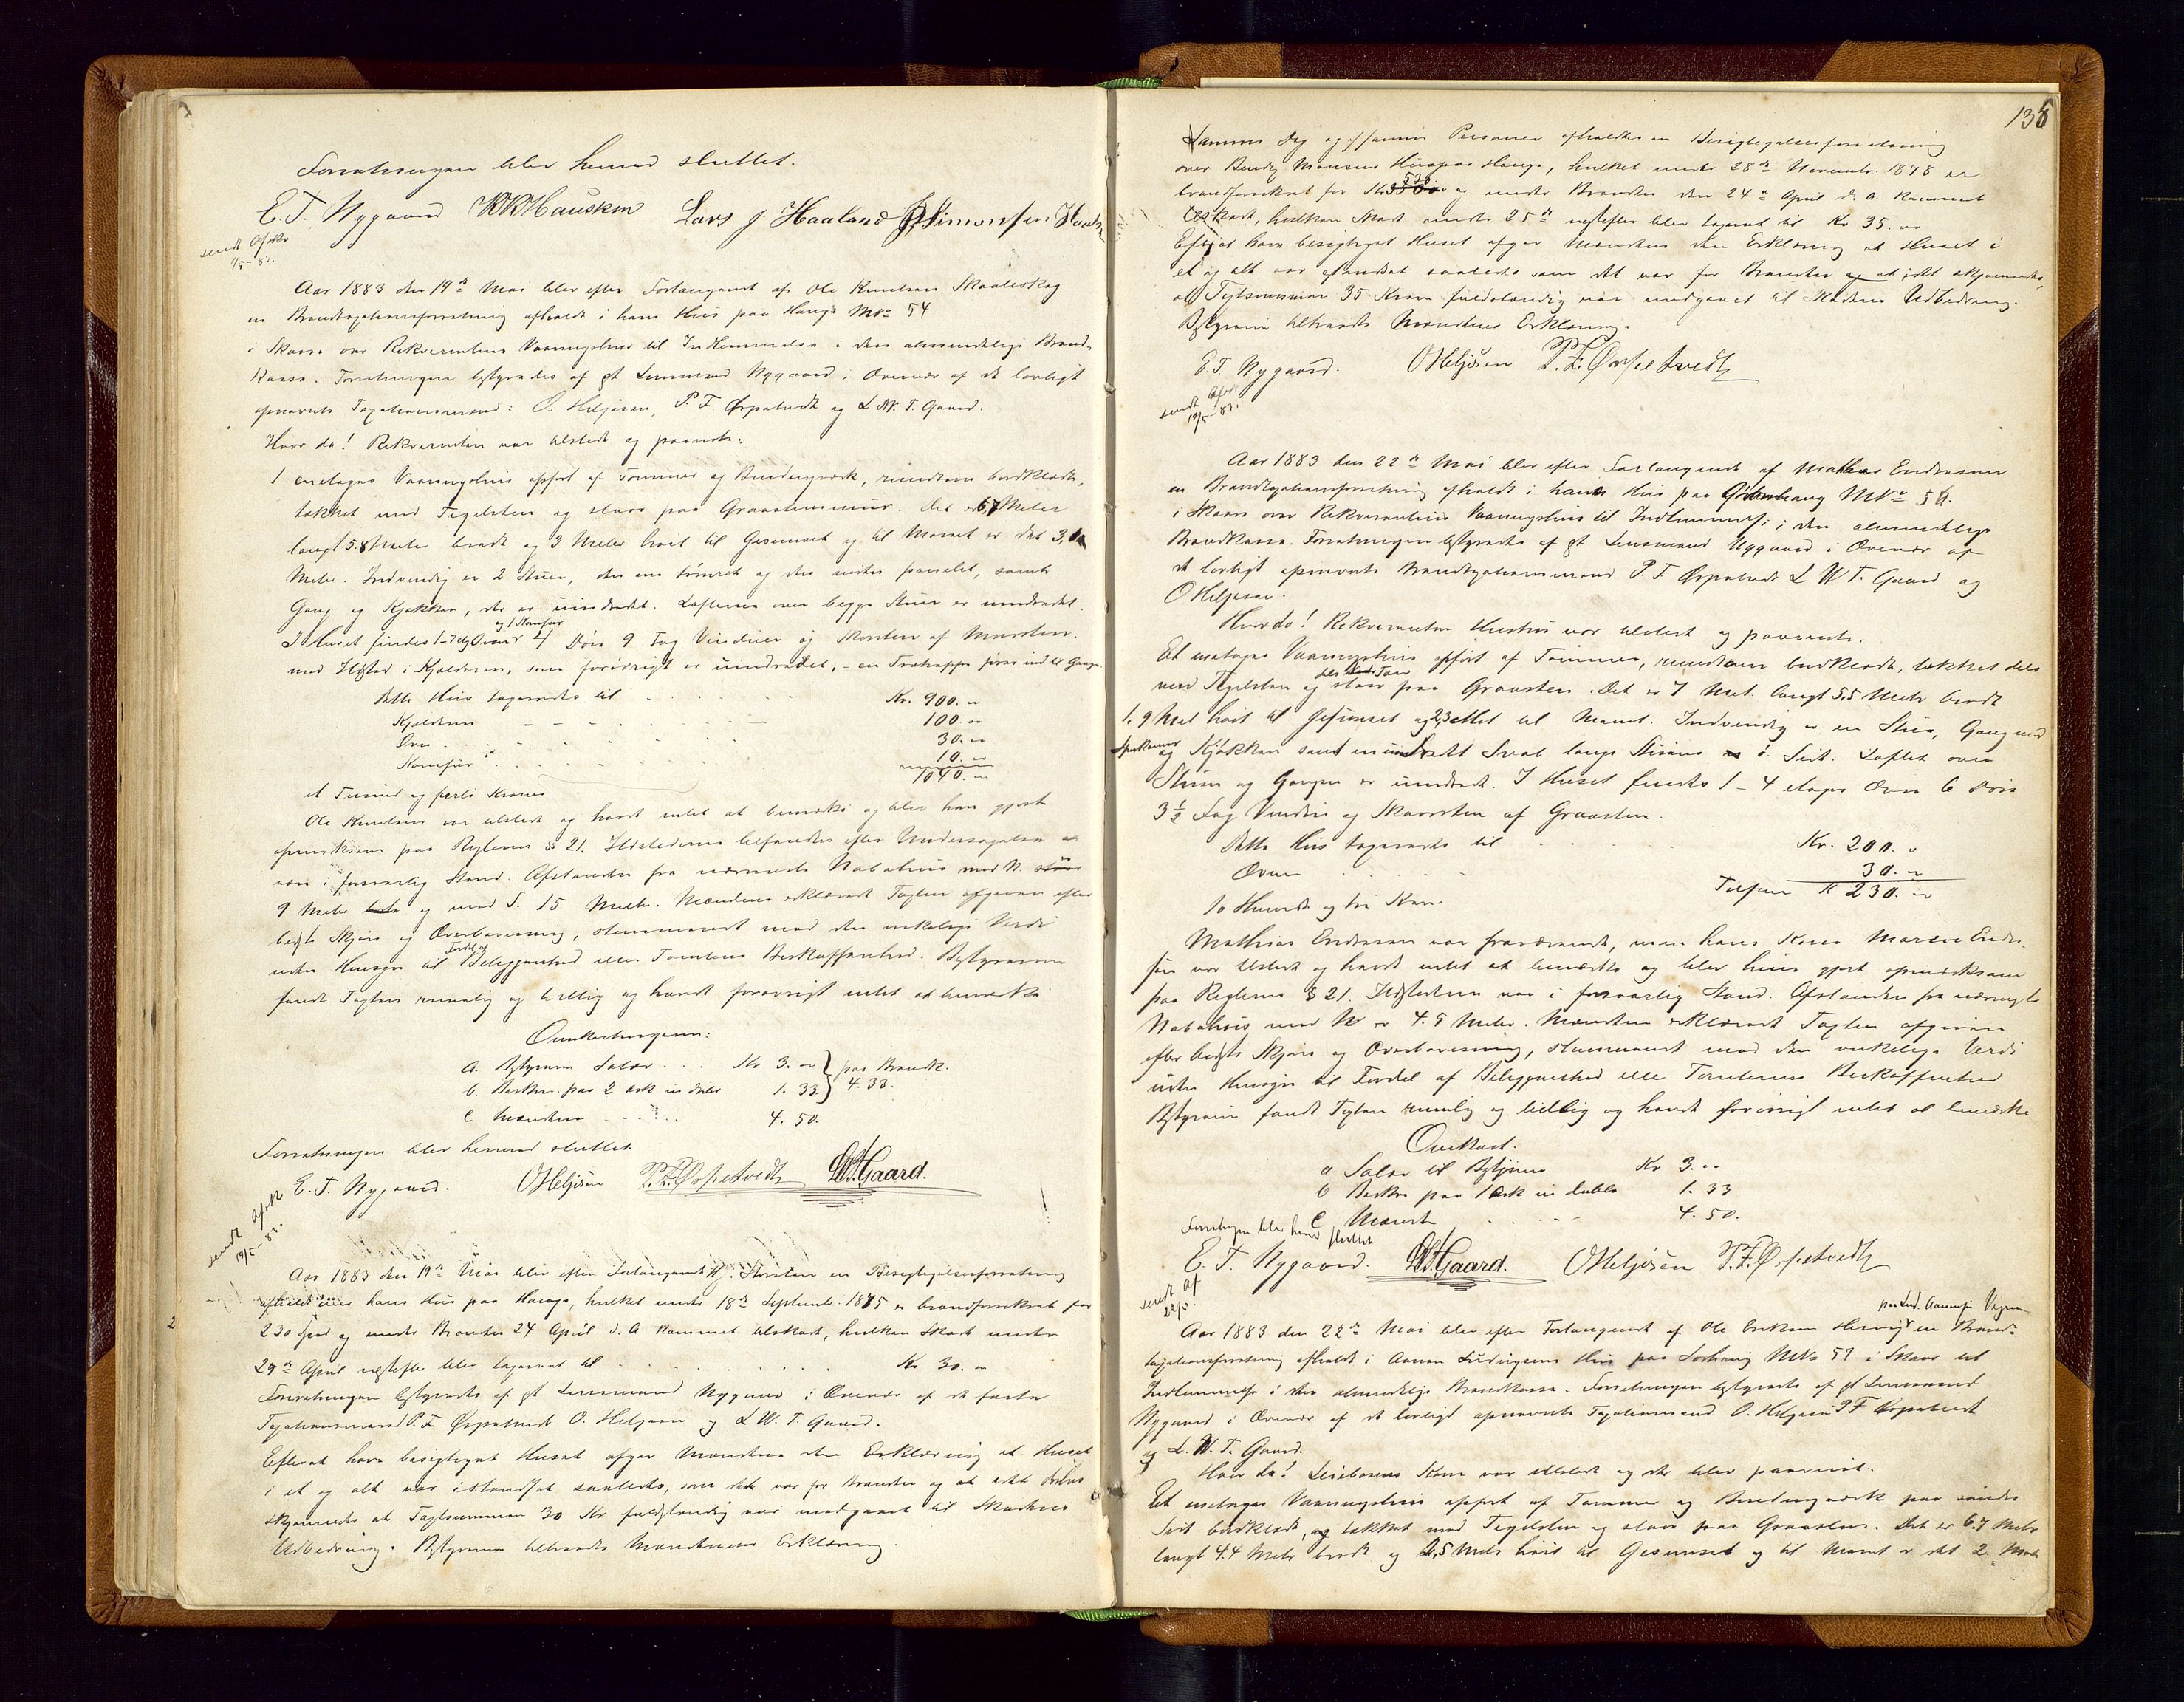 Forretningen blev hermed sluttet.
E. T. Nygaard KKHausken Lars J Haaland Simonsen
sendt Afskr
1/5-83.
Aar 1883 den 19de Mai blev efter Forlangende af Ole Knudsen Skaaleskog
en Brandtaxationsforretning afholdt i hans Hus paa Hauge MNo 54
i Skaare over Rekvirentens Vaaningshus til Indlemmelse i den almindelige Brand-
kasse. Forretningen bestyredes af gt Lensmand Nygaard, i Overvær af de lovligt
opnævnte Taxationsmænd: O. Heljesen, P. F. Ørpetvedt og L. W. T. Gaard.
Hvor da! Rekvirenten var tilstede og paaviste:
1 enetages Vaaningshus opført af Tømmer og Bindingsværk, rundtom bordklædt,
tækket med Tegelsten og staar paa Graastensmuur. Det er 6,7 Meter
langt 5.8 Meter bredt og 3 Meter høit til Gesimset og til Mønet er det
Meter. Indvendig er 2 Stuer, den ene tømret og den anden panelet, samt
Gang og Kjøkken, der er uindredet. Lofterne over begge Stuer er uindredet.
og 1 Komfur
I Huset findes 1-7 Ovn Døre 9 Fag Vinduer og Skorsten af Mursten
med Ildsted i Kjælderen, som forøvrigt er uindredet, - en Trætrappe fører ind til Gangen
Dette Hus taxeredes til Kr. 900. "
Kjælderen 100. "
Ovn 30. "
Komfur 10. "
1040. "
et Tusind og førti Kroner
Ole Knudsen var tilstede og havde intet at bemærke og blev han gjort
opmærksom paa Reglerne § 21. Ildstederne befandtes efter Undersøgelse at
være i forsvarlig Stand. Afstanden fra nærmeste Nabohus mod N.
9 Meter og mod S. 15 Meter. Mændene erklærede Taxten afgiven efter
bedste Skjøn og Overbevisning, stemmende med den virkelige Værdi
Fordel af
uden Hensyn til Beliggenhed eller Tomtens Beskaffenhed. Bestyreren
fandt Taxten rimelig og billig og havde forøvrigt intet at bemærke
Omkostningerne:
a. Bestyrerens Salær Kr 3. " } paa Brandk.
b. Beskr. paa 2 Ark in dublo 1. 33 } 4.33.
c Mændene 4. 50.
Forretningen blev hermed sluttet
E. T. Nygaard. OHeljesen P.F.Ørpetvedt LWTGaard.
sendt Afskr
19/5-83.
Aar 1883 den 19de Mai blev efter Forlangende Hj. Thorsen en Besigtigelsesforretning
afholdt over hans Hus paa Hauge, hvilket under 18de Septembr. 1875 er brandforsikret for
230 Spd og under Branden 24 April d. A kommet tilskade, hvilken Skade under
29de April næstefter blev taxeret til Kr 30. "
Forretningen bestyredes af gt Lensmand Nygaard i Overvær af de faste
Taxationsmænd P. F. Ørpetvedt O. Heljesen og L W. T. Gaard.
Efterat have besigtiget Huset afgav Mændene den Erklæring at Huset
i et og alt var istandsat saaledes, som det var før Branden og at
skjønnedes at Taxtsummen 30 Kr fuldstændig var medgaaet til Skadens
Udbedring. Bestyreren tiltraadte Mændenes Erklæring.
138
Samme Dag og af samme Personer afholdtes en Besigtigelsesforretning
over Hus paa Hauge, hvilket under 28de Novembr. 1878 er
brandforsikret for Kr. 530 og under Branden den 24de April d. A. kommet
tilskade, hvilken Skade under 25de næstefter blev taxeret til Kr 35. "
Efterat have besigtiget Huset afgav Mændene den Erklæring at Huset i
et og alt var istandsat saaledes som det var før Branden og at det skjønnedes,
at Taxtsummen 35 Kroner fuldstændig var medgaaet til Skadens Udbedring.
Bestyreren tiltraadte Mændenes Erklæring.
E. T. Nygaard. OHeljesen P. F. Ørpetvedt
sendt Afskr
19/5-83.
Aar 1883 den 22de Mai blev efter Forlangende af Mathias Endresen
en Brandtaxationsforretning afholdt i hans Hus paa MNo
i Skaare over Rekvirentens Vaaningshus til Indlemmelse i den almindelige
Brandkasse. Forretningen bestyredes af gt Lensmand Nygaard i Overvær af
de lovligt opnævnte Brandtaxationsmænd P. F. Ørpetvedt L W T. Gaard og
O Heljesen.
Hvor da! Rekvirentens Hustru var tilstede og paaviste.
Et enetages Vaaningshus opført af Tømmer, rundtom bordklædt, tækket dels
med Tegelsten og dels Torv staar paa Graasten. Det er 7 Met. langt 5,5 Meter bredt
1.9 Met høit til Gesimset og 2,3 Met til Mønet. Indvendig er en Stue, Gang med
Spiskammer og Kjøkken samt en uindredt Sval langs Stuens ø. Side. Loftet over
Stuen og Gangen er uindredt. I Huset findes 1 - 4 etages Ovn 6 Døre
3 1/2 Fag Vinduer og Skorsten af Graasten.
Dette Hus taxeredes til Kr. 200. "
Ovnen 30. "
Tilsam K 230. "
To Hundrede og tre Kron.
Mathias Endresen var fraværende, men hans Kone Endre-
sen var tilstede og havde intet at bemærke og blev hun gjort opmærksom
paa Reglerne § 21. Ildstederne var i forsvarlig Stand. Afstanden fra nærmeste
Nabohus mod N er 4.5 Meter. Mændene erklærede Taxten afgiven
efter bedste Skjøn og Overbevisning, stemmende med den virkelige Værdi
uden Hensyn til Fordel af Beliggenhed eller Tomtens Beskaffenhed
Bestyreren fandt Taxten rimelig og billig og havde forøvrigt intet at bemærke
Omkost.
a Salær til Bestyreren Kr 3. "
b Beskr. paa 1 Ark in dublo 1. 33
c Mændene 4. 50.
Forretningen blev hermed sluttet
E. T. Nygaard. LWTGaard. OHeljesen P.F.Ørpetvedt
sendt Af
22/5.
Aar 1883 den 22de Mai blev efter Forlangende af Ole Eriksen en Brand-
taxationsforretning afholdt i Aanen Ludvigsens Hus paa MNo i Skaare til
Indlemmelse i den almindelige Brandkasse. Forretningen bestyredes af gt Lensmand
Nygaard i Overvær af de lovligt opnævnte Taxationsmænd O. Heljesen P F Ørpetvedt
og L. W. T. Gaard.
Hvor da! Leieboerens Kone var tilstede og der blev paavist.
Et enetages Vaaningshus opført af Tømmer og Bindingsværk paa søndre
Side bordklædt, og tækket med Tegelsten og staar paa Graasten. Det er 6.7 Meter
langt 4.4 Meter bredt og 2,5 Meter høit til Gesimset og til Mønet er det